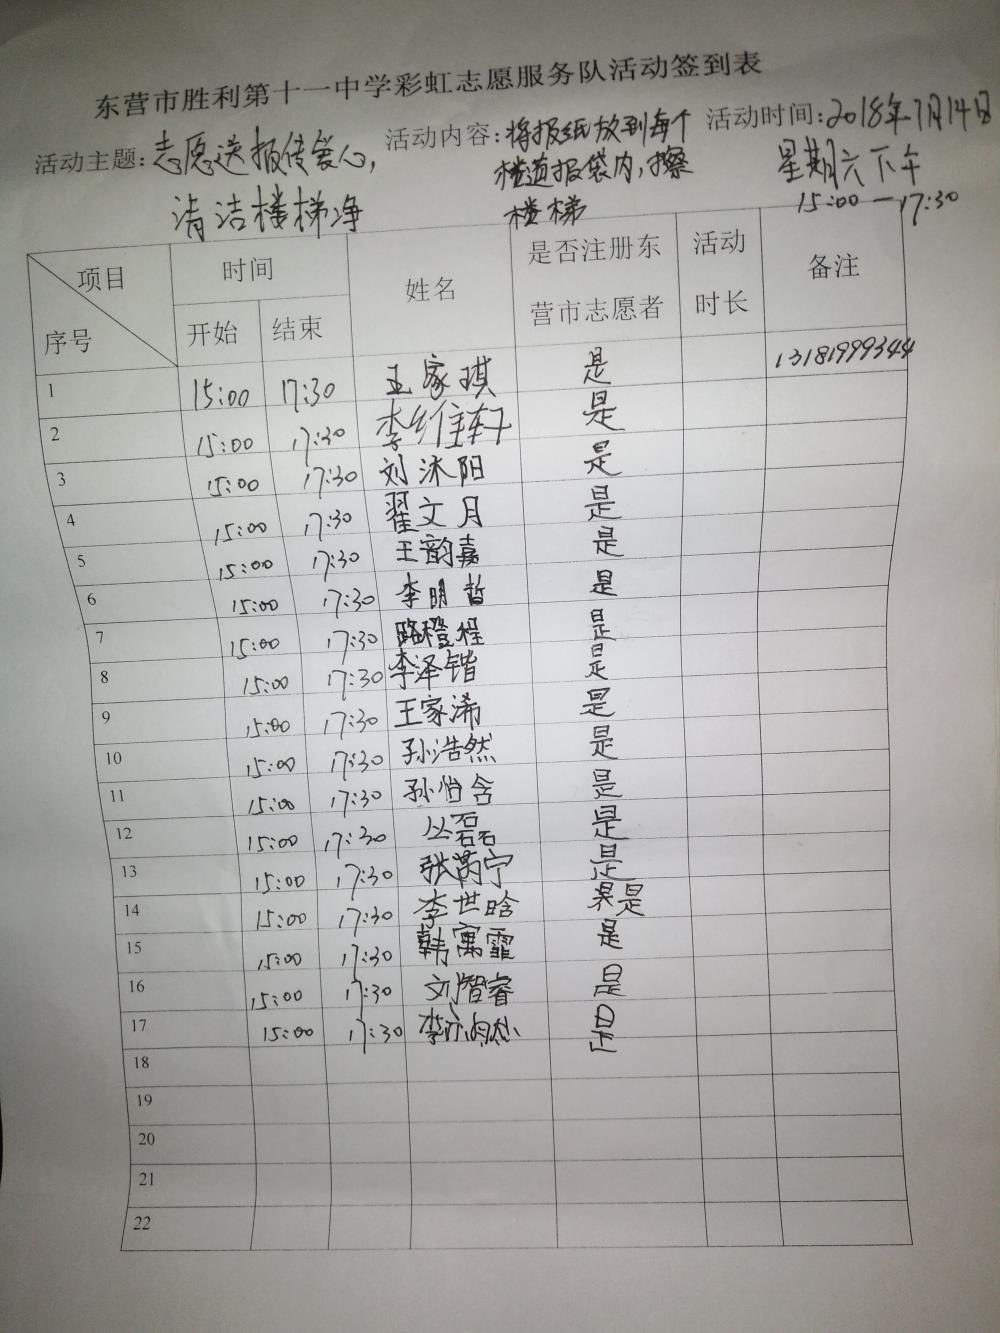 东营市胜利第十一中学彩虹志愿服务队活动签到表
活动主题:志愿送报传爱心, 活动内容:将报纸放到每个 活动时间:2018年7月14日
清洁楼梯净 楼道报袋内,擦 星期六下午
楼梯 15:00—17:30
项目 时间 姓名 是否注册东 活动 备注
序号 开始 结束 营市志愿者 时长
1 15:00 17:30 王家琪 是 13181999344
2 15:00 17:30 李维轩 是
3 15:00 17:30 刘沐阳 是
4 15:00 17:30 翟文月 是
5 15:00 17:30 王韵嘉 是
6 15:00 17:30 李明哲 是
7 15:00 17:30 路橙程 是
8 15:00 17:30 李泽锴 是
9 15:00 17:30 王家浠 是
10 15:00 17:30 孙浩然 是
11 15:00 17:30 孙怡含 是
12 15:00 17:30 丛磊 是
13 15:00 17:30 张芮宁 是
14 15:00 17:30 李世晗 是
15 15:00 17:30 韩寓霏 是
16 15:00 17:30 刘智睿 是
17 15:00 17:30 李亦 是
18
19
20
21
22